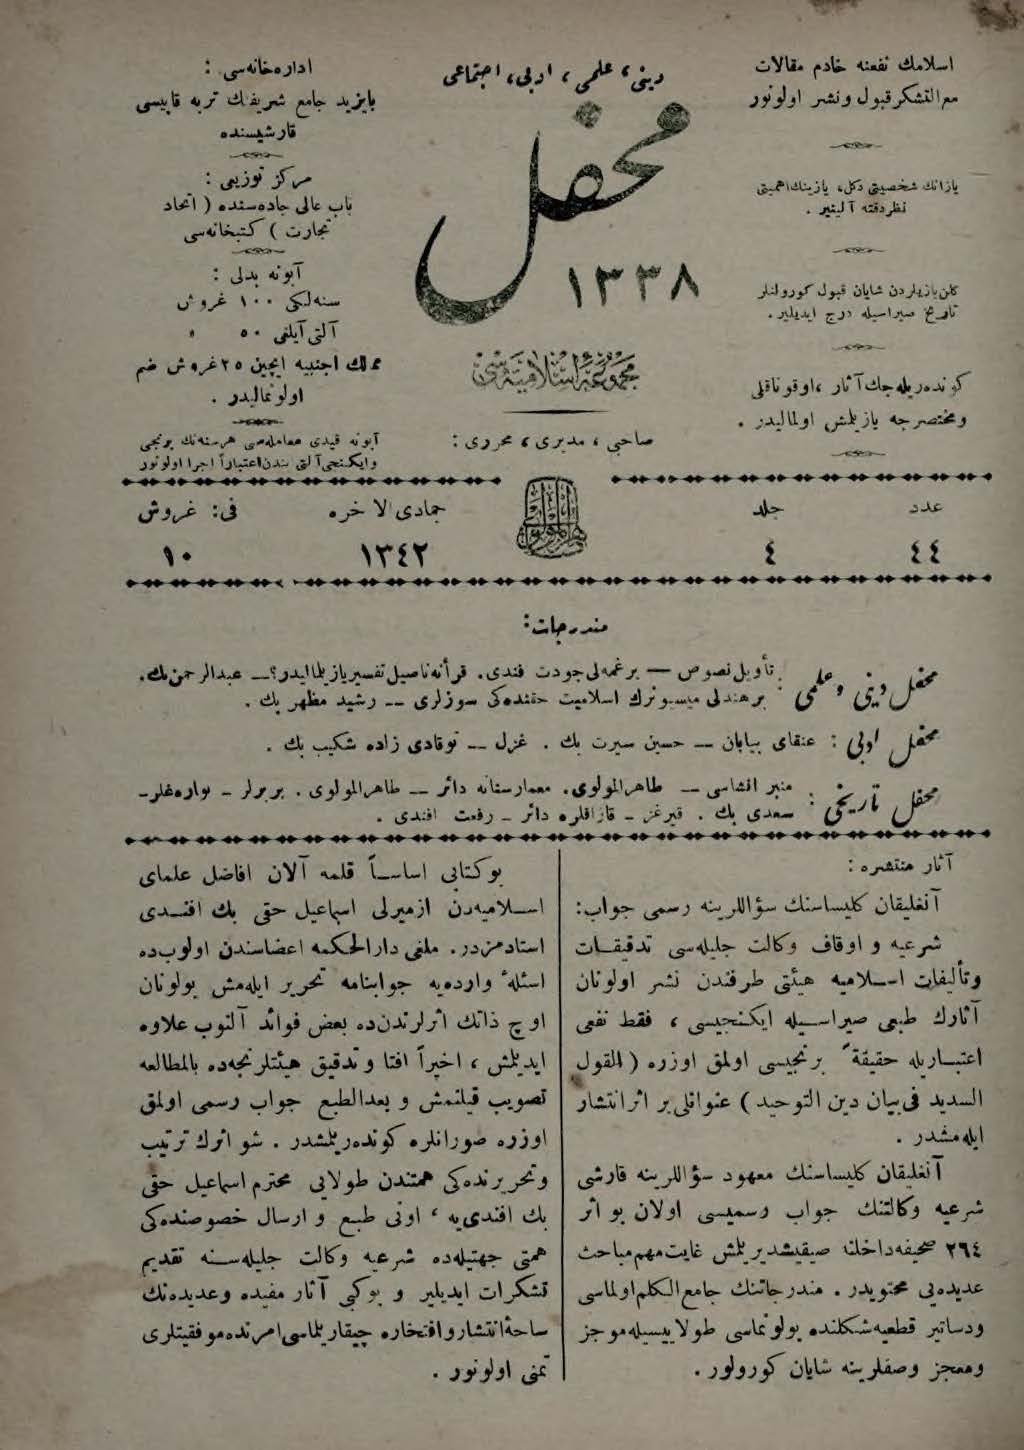 اسلامك نفعنه خادم مقالات
مع التشكر قبول و نشر اولونور
يازانك شخصيتى دكل، يازينك اهميتى
نظر دقته آلينير .
كلن يازيلردن شايان قبول كورولنلر
تاريخ صيراسيله درج ايديلير .
كوندهريله جك آثار ، اوقوناقلى
ومختصرجه يازيلمش اولماليدر .
دينى ، علمى ، ادبى ، اجتماعى
محفل
١٣٣٨
مجموعۀ اسلاميه سى
صاحبى ، مديرى ، محررى :
اداره خانه سى :
بايزيد جامع شريفك تربه قاپيسى
قارشيسنده
مركز توزيعى :
باب عالى جاده سنده ( اتحاد
تجارت ) كتبخانه سى
آبونه بدلى :
سنه لكى ١٠٠ غروش
آلتى آيلغى ٥٠ »
ممالك اجنبيه ايچين ٢٥ غروش ضم
اولونماليدر .
آبونه قيدى معامله سى هر سنه نك برنجى
وايكنجى آلتى آيندن اعتباراً اجرا اولونور
عدد جلد جمادى الاخره فى: غروش
٤٤ ٤ ١٣٤٢ ١٠
مندرجات:
محفل دينى و علمى : تأويل نصوص — برغمه لى جودت فندى . قرأنه ناصيل تفسير يازيلماليدر؟ — عبدالرحمن بك .
برهندلى ميسيونرك اسلاميت حقنده كى سوزلرى — رشيد مظهر بك .
محفل ادبى : عنقاى بيابان — حسين سيرت بك . غزل — توقادى زاده شكيب بك .
محفل تاريخى : منبر انشاسى — طاهر المولوى . معمار سنانه دائر — طاهر المولوى . بربرلر - نواره غلر -
سعدى بك . قيرغز - قازاقلره دائر - رفعت افندى .
آثار منتشره :
آنغليقان كليساسنك سؤاللرينه رسمى جواب:
شرعيه و اوقاف وكالت جليله سى تدقيقات
وتأليفات اسلاميه هيئتى طرفندن نشر اولونان
آثارك طبعى صيراسيله ايكنجيسى ، فقط نفعى
اعتباريله حقيقةً برنجيسى اولمق اوزره ( القول
السديد فى بيان دين التوحيد ) عنوانلى بر اثر انتشار
ايله مشدر .
آنغليقان كليساسنك معهود سؤاللرينه قارشى
شرعيه وكالتنك جواب رسميسى اولان بو اثر
٢٦٤ صحيفه داخلنه صيقيشديريلمش غايت مهم مباحث
عديده يى محتويدر . مندرجاتنك جامع الكلم اولماسى
ودساتير قطعيه شكلنده بولونماسى طولاييسيله موجز
ومعجز وصفلرينه شايان كورولور .
بو كتابى اساساً قلمه آلان افاضل علماى
اسلاميه دن ازميرلى اسماعيل حقى بك افندى
استادمزدر . ملغى دار الحكمه اعضاسندن اولوب ده
اسئلۀ وارده يه جوابنامه تحرير ايله مش بولونان
اوچ ذاتك اثرلرندن ده بعض فوائد آلنوب علاوه
ايديلمش ، اخيراً افتا و تدقيق هيئتلرنجه ده بالمطالعه
تصويب قيلنمش و بعد الطبع جواب رسمى اولمق
اوزره صورانلره كوندهريلمشدر . شو اثرك ترتيب
وتحريرنده كى همتندن طولايى محترم اسماعيل حقى
بك افندى يه ، اونى طبع و ارسال خصوصنده كى
همتى جهتيله ده شرعيه وكالت جليله سنه تقديم
تشكرات ايديلير و بوكبى آثار مفيده وعديده نك
ساحۀ انتشار وافتخاره چيقاريلماسى امرنده موفقيتلرى
تمنى اولونور .